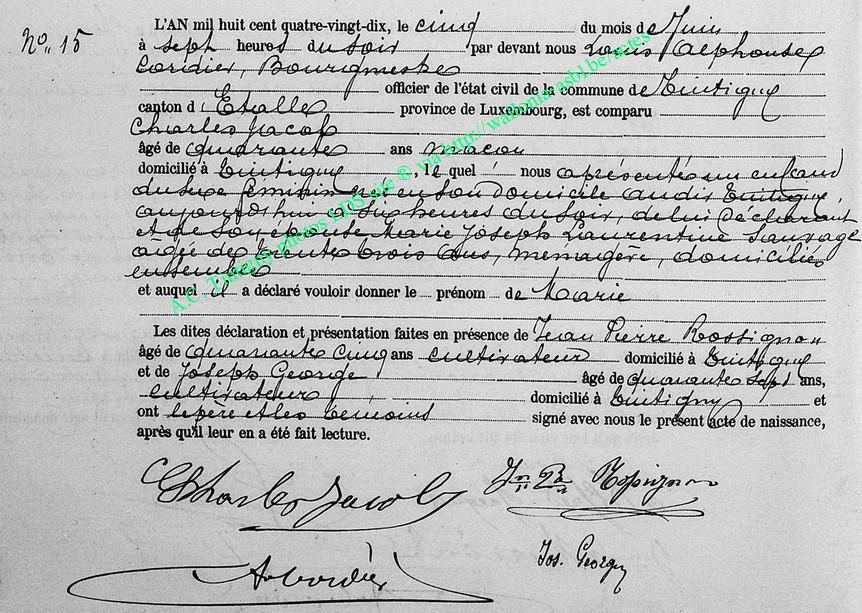 No. 15
L'AN mil huit cent quatre-vingt-dix, le cinq du mois de Juin
à sept heures du soir par devant nous Louis Alphonse
Cordier, Bourgmestre
officier de l'état civil de la commune de Tintigny
canton d'Etalle province de Luxembourg, est comparu
Charles Jacob
âgé de quarante ans maçon
domicilié à Tintigny, lequel nous a présenté un enfant
du sexe féminin né en son domicile audit Tintigny,
aujourd'hui à six heures du soir, de lui déclarant
et de son épouse Marie Joseph Laurentine Sauvage
âgée de trente trois ans, ménagère, domiciliés
ensemble
et auquel il a déclaré vouloir donner le prénom de Marie
Les dites déclaration et présentation faites en présence de Jean Pierre Rossignon
âgé de quarante cinq ans cultivateur domicilié à Tintigny
et de Joseph George âgé de quarante sept ans,
cultivateur domicilié à Tintigny et
ont le père et les témoins signé avec nous le présent acte de naissance,
après qu'il leur en a été fait lecture.
Charles Jacob Jn Pre Rossignon
A Cordier Jos. George
A.C. Tintigny photos LDS site ® via http://wallonia-asbl.be/actes